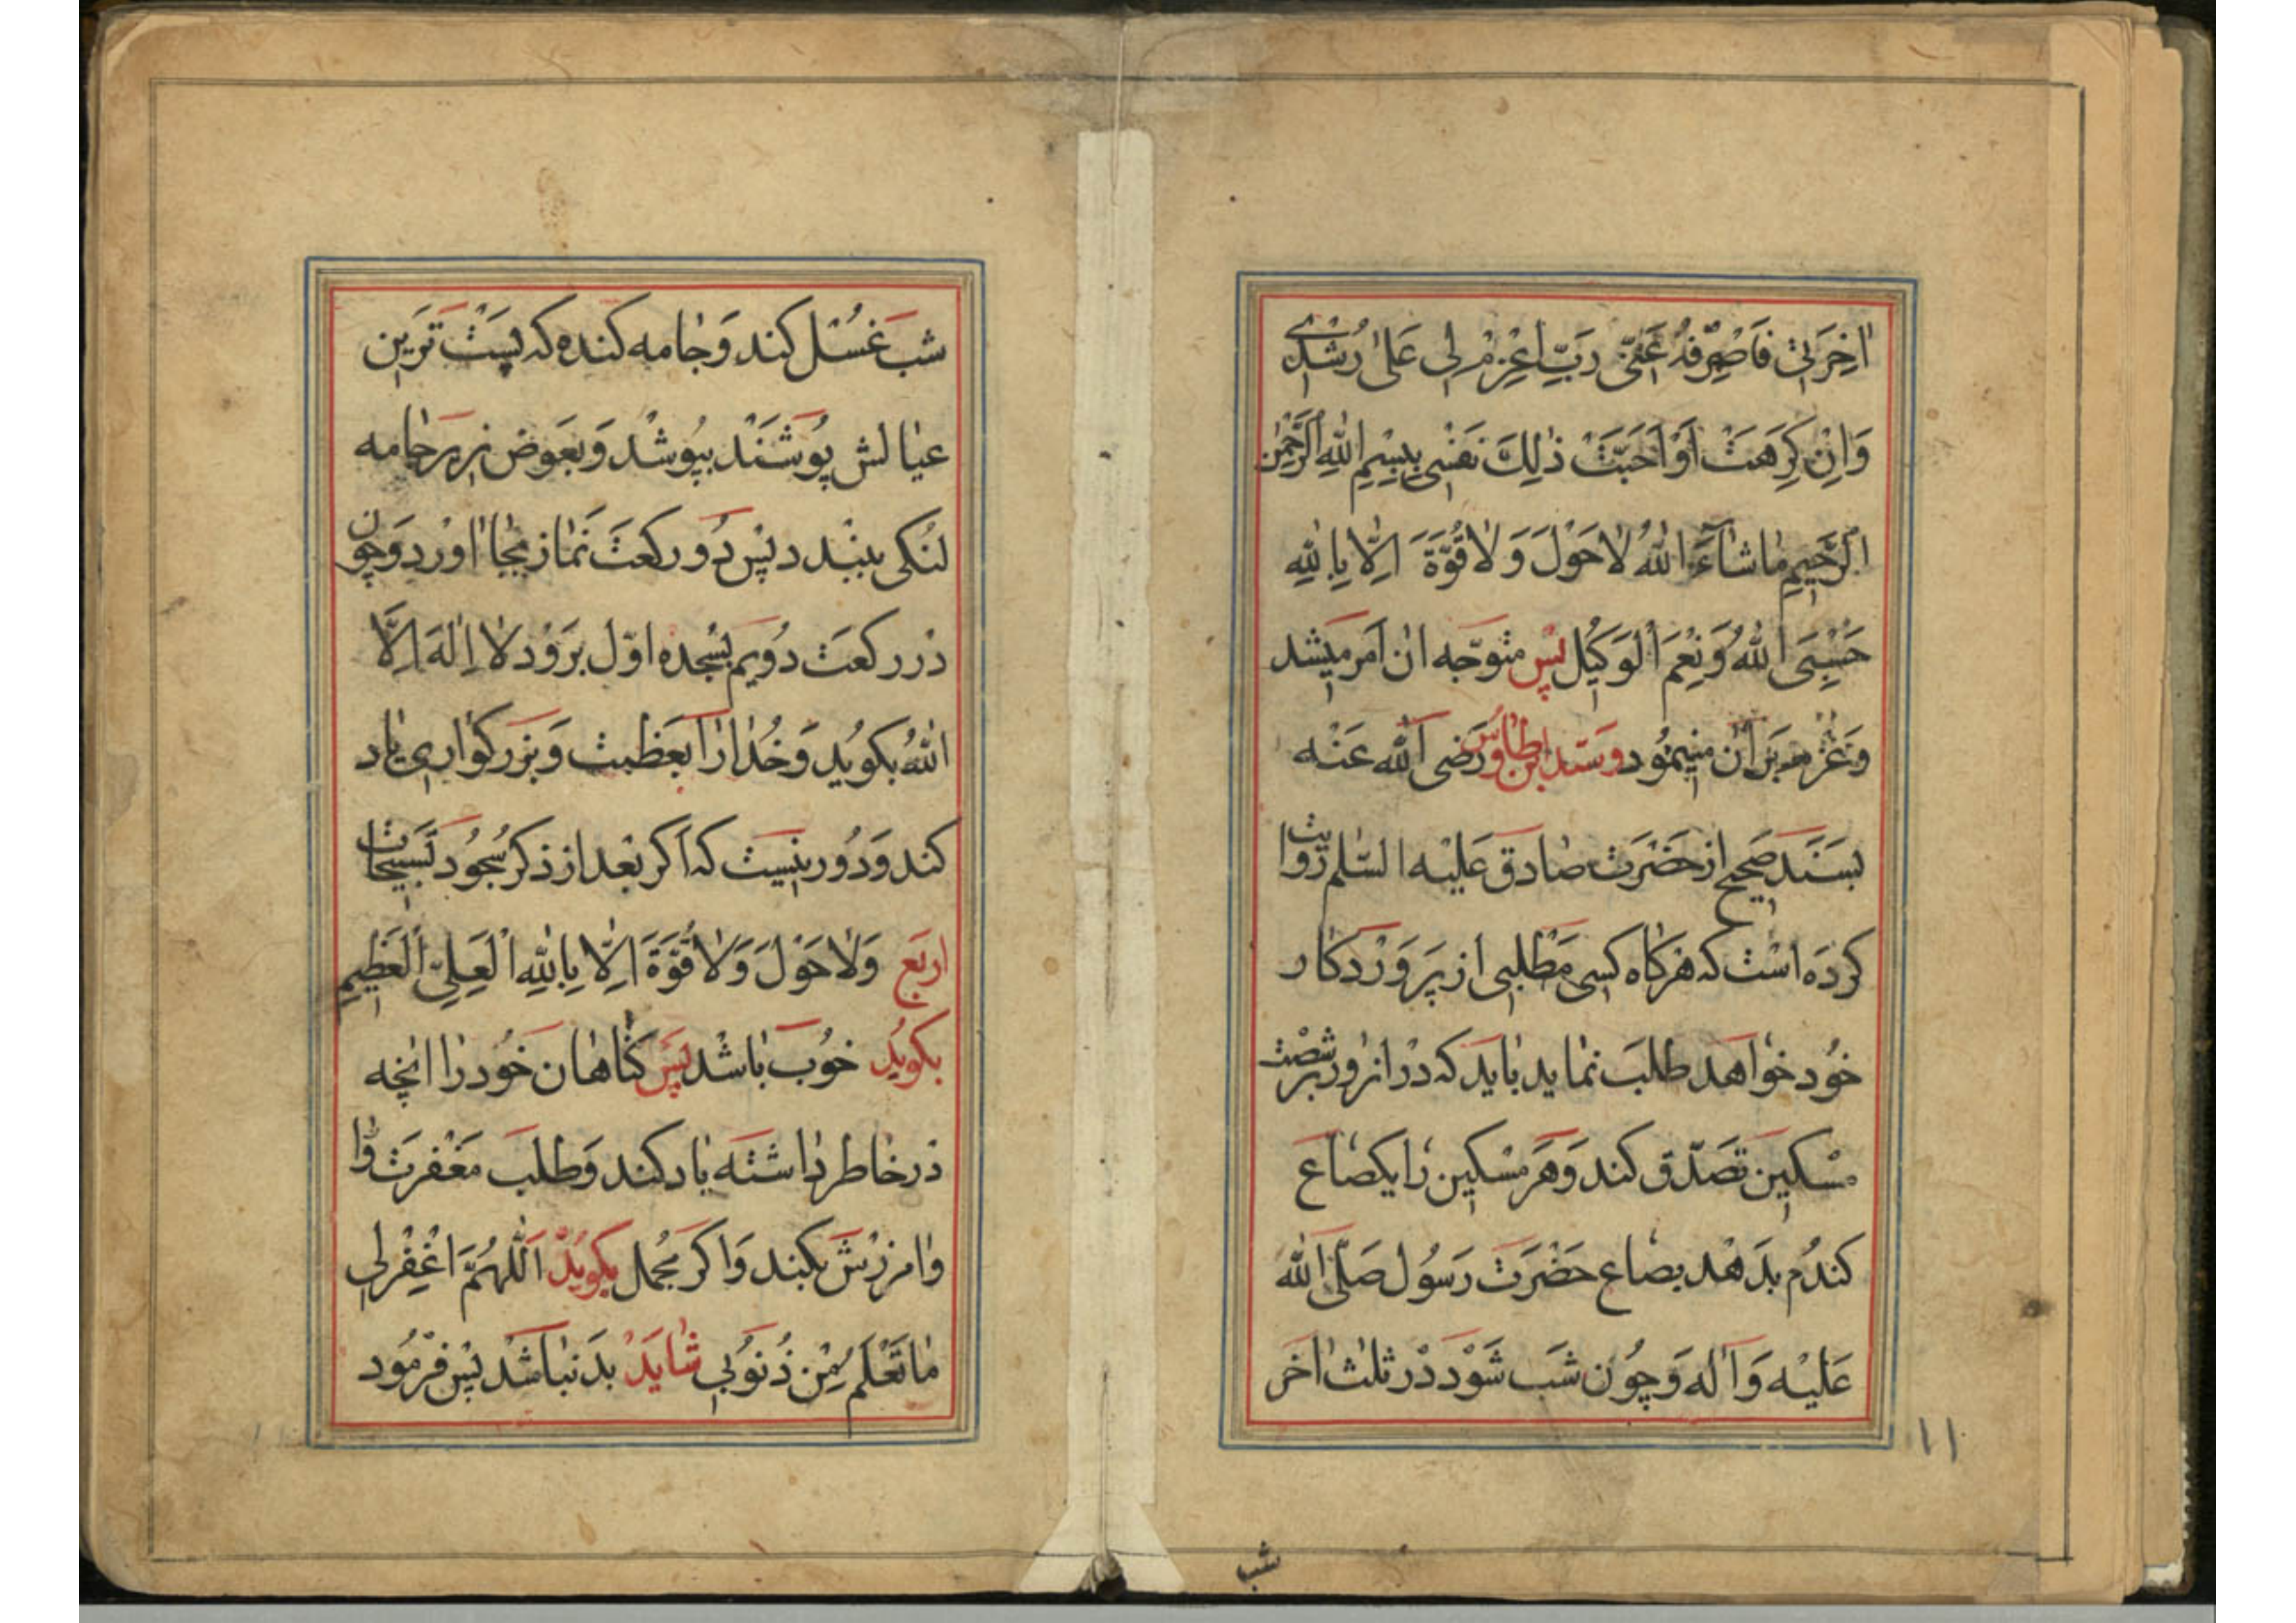 اٰخِرَتِیْ فَاصْرِفْهُ عَنّیْ رَبِّ اعْزِمْ لِی عَلیٰ رُشْدِیْ
وَاِنْ كَرِهَتْ اَوْ اَحَبَّتْ ذٰلِكَ نَفْسِی بِسْمِ اللهِ الرَّحْمٰنِ
الرَّحِیمِ مٰا شٰآءَ اللهُ لاٰ حَوْلَ وَ لاٰ قُوَّةَ اِلّاٰ بِاللهِ
حَسْبِیَ اللهُ وَ نِعْمَ الْوَكیٖلُ پس متوَجّه ان اَمر میشد
وَ عَزْم بَر اٰن میٖنِمُود و سَیّد ابن طٰاوُس رَضی الله عَنْه
بسَنَد صَحیح از حَضْرَت صٰادق عَلیْه السّلم رَوٰایت
كرده است كه هَركاه كسی مَطْلبی از پَرَوَرْدكٰار
خوُد خوٰاهَد طلبَ نمٰاید بٰاید كه دْر انروز بَر شصْت
مسْكین تصَدّق كند وَ هَر مسْكین رٰا یكصٰاع
كندُم بدَهْد بصٰاع حَضْرَت رَسُول صَلّی الله
عَلیْه وَ اٰله وَ چُون شَب شَوْد دْر ثلث اٰخَر
١١
شب
شب غسُل كند وَ جٰامه كنده كه پَسْت تَرَین
عیٰالش پُوشَنْد بپوُشْد وَ بعَوض زیر جٰامه
لنُكی ببنْد د پس دُو ركعَت نَمٰاز بجٰا اٰوْرد وَ چوُن
دْر ركعَت دُویم بسُجده اوّل بَرَوْد لاٰ اِلٰهَ اِلاَّ
اللهُ بكوُید وَ خُدٰا رٰا بعَظمت وَ بَزركوٰاری یٰاد
كند وَ دُور نیٖست كه اَكر بعْد از ذكر سُجُود تسبیحٰات
اربَع وَ لاٰ حَوْلَ وَ لاٰ قُوَّةَ اِلّاٰ بِاللهِ الْعَلِیِّ الْعَظیٖمِ
بكوُید خوُب بٰاشْد پَس كنٰاهٰان خوُد رٰا انچه
دْر خٰاطر دٰاشته یٰاد كند وَ طلبَ مَغْفرَت وٰ ا
وٰامرزش بكند وَ اكر مجُمل بكوُید اَللّٰهُمَّ اغْفِرْ لِی
مٰا تَعْلَم مِنْ ذُنوُبی شٰایَدْ بدَ نبٰاشْد پس فرْمُود